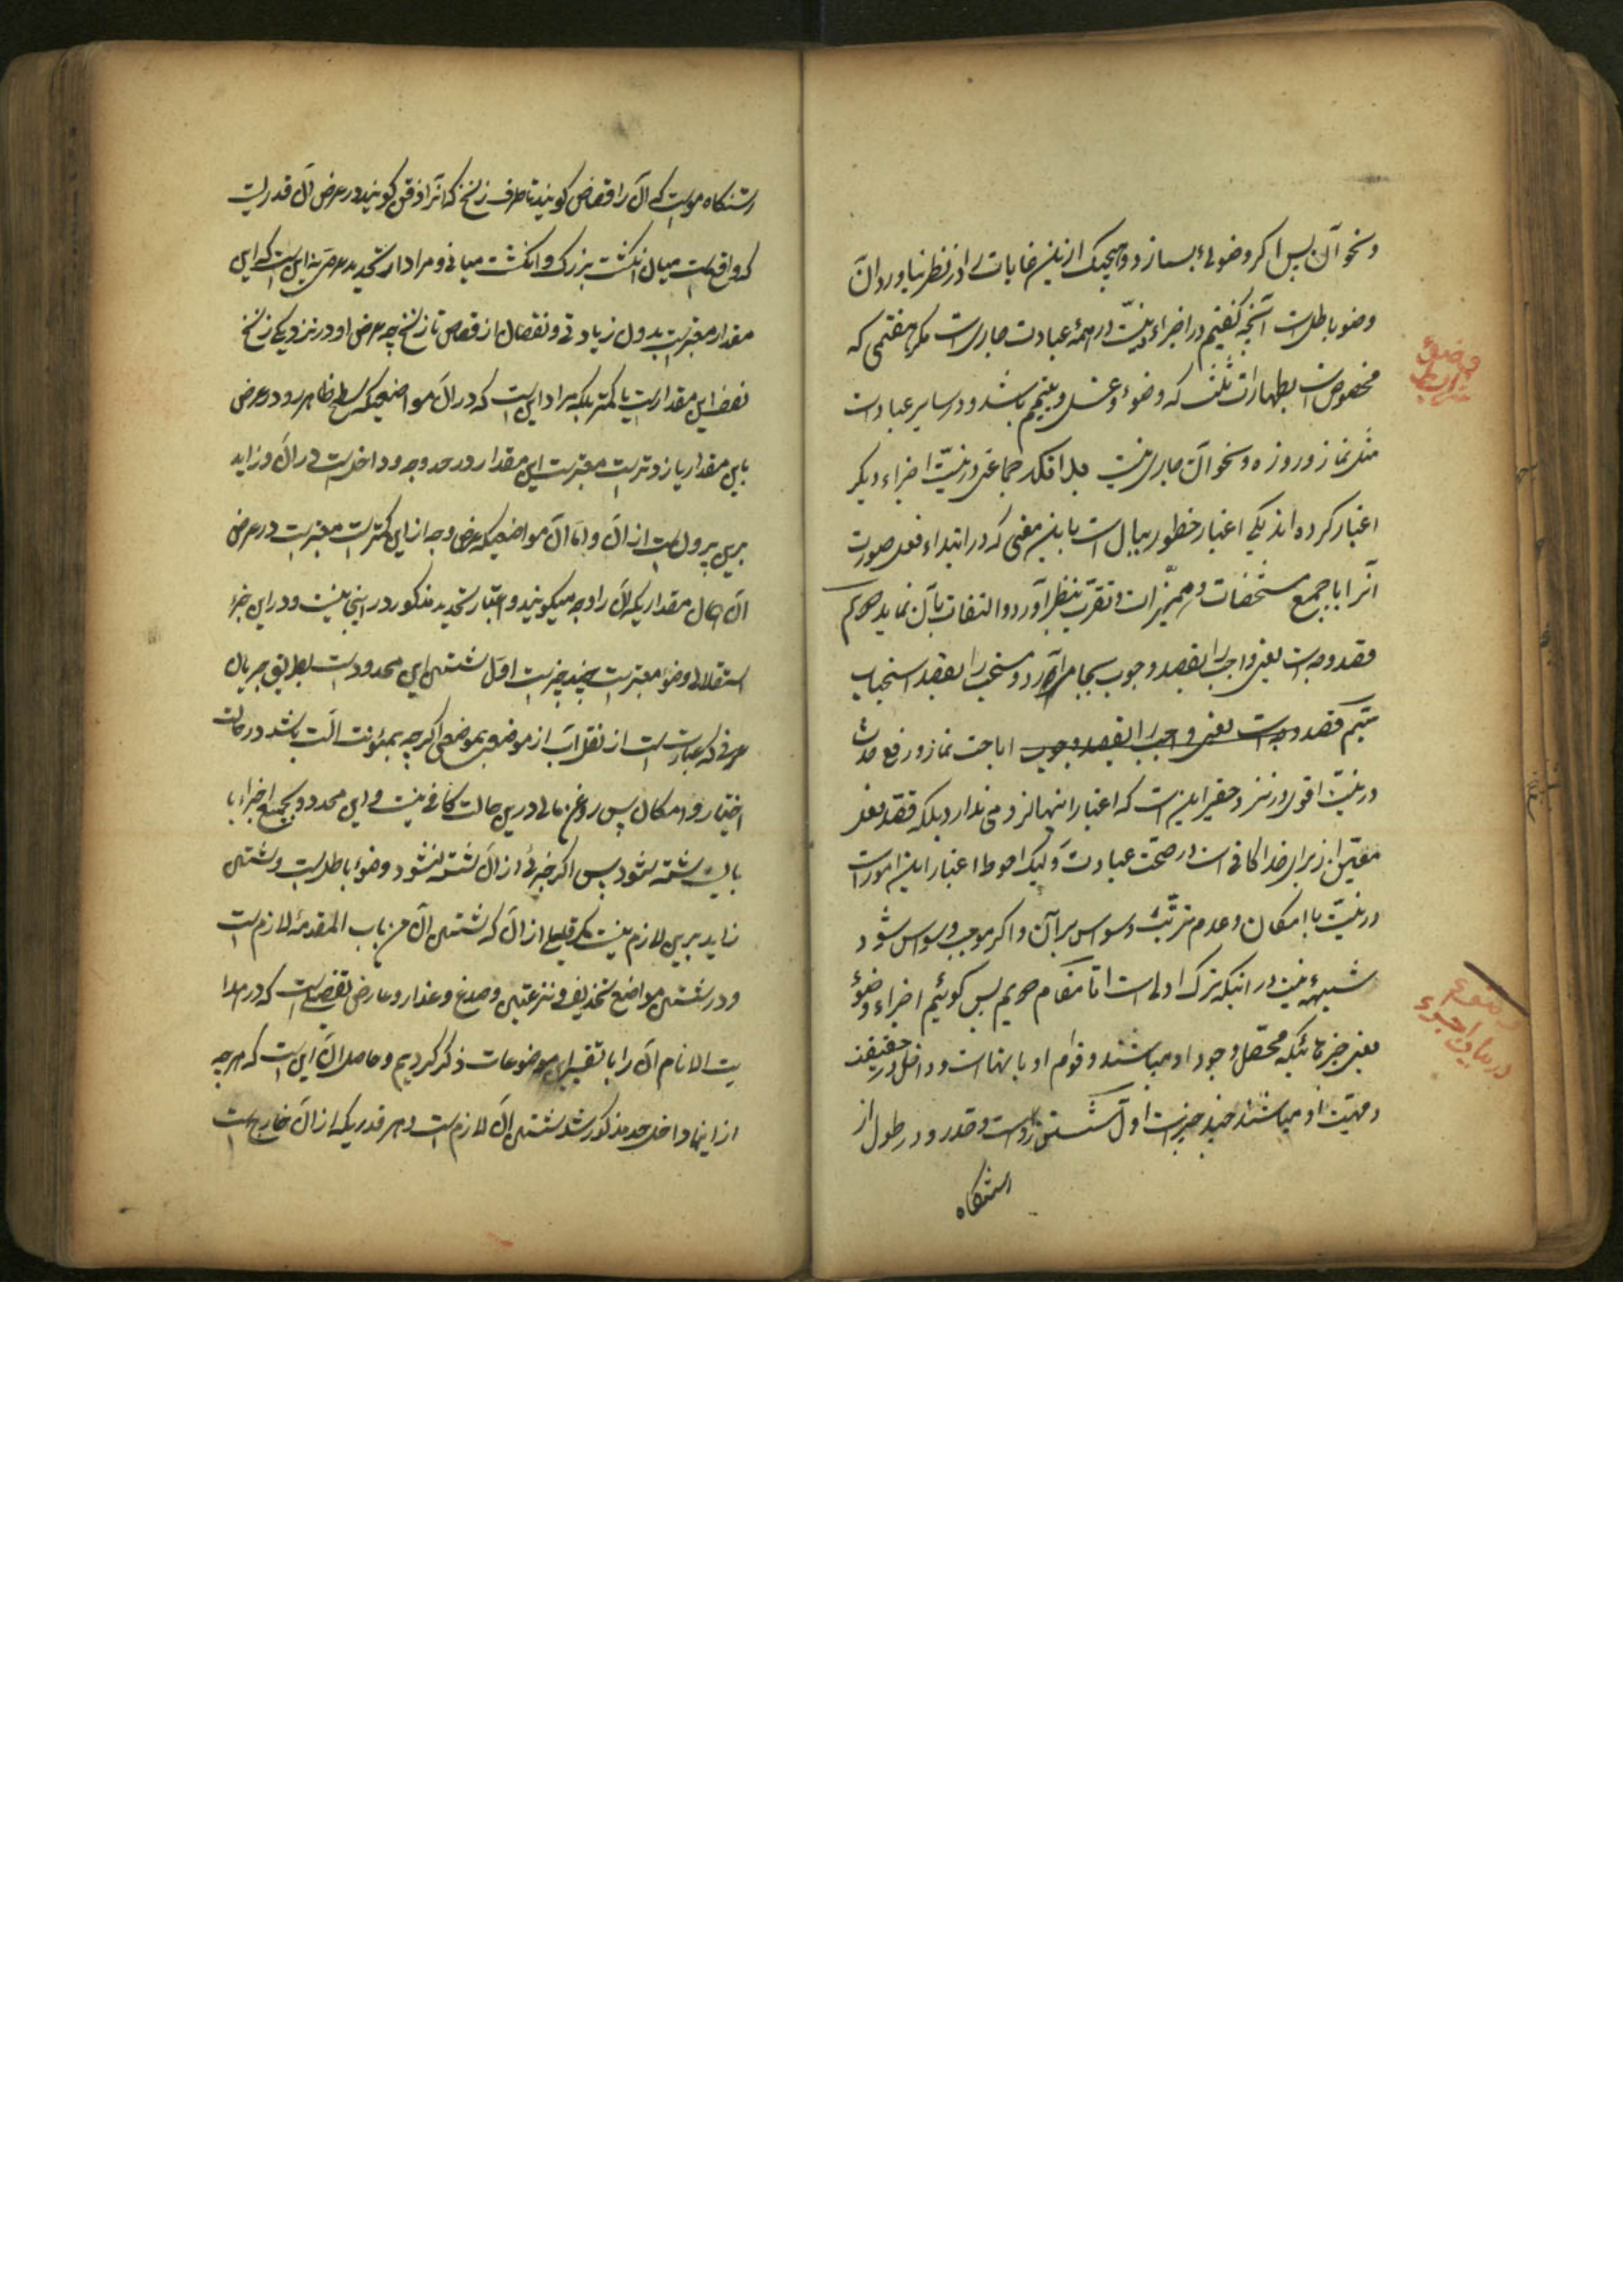 و نحو آن پس اگر وضوئی بسازد و هیچیک ازین غایات را در نظر نیاورد آن
وضو باطل است آنچه گفتیم در اجزاء نیّت در همهٔ عبادت جاری است مگر هفتمی که
مخصوص است بطهارات ثلث که وضوء و غسل و تیمم باشد و در سایر عبادات
مثل نماز و روزه و نحو آن جاری نیست جماعتی در نیّت اجزاء دیگر
اعتبار کرده‌اند یکی اعتبار خطور ببال است باین معنی که در ابتداء فعل صورت
آنرا با جمیع مشخصات و ممیّزات و تقرّب بنظر آورد و التفات بآن نماید دویم
قصد وجه است یعنی واجب را بقصد وجوب بجا آورد و مستحب را بقصد استحباب
سیّم قصد وجه است یعنی واجب را بقصد وجوب اباحت نماز و رفع حدث
در نیّت اقوی در نزد حقیر این است که اعتبار اینها لزومی ندارد بلکه قصد فعل
معیّن از برای خدا کافی است در صحّت عبادت و لیک احوط اعتبار این امور است
در نیّت با امکان و عدم ترتّب وسواس بر آن و اگر موجب وسواس شود
شبهه نیست در اینکه ترک اولی است امّا مقام دویم پس گوئیم اجزاء وضوء
یعنی چیزهائیکه محصّل وجود او میباشند و قوام او بانهاست و داخل در حقیقت
و مهیّت او میباشند چند چیز است اوّل شستن رو است و قدر رو در طول از
رستنگاه
وضوء
شرایط
وضوء
در بیان اجزاء
رستنگاه مو است که آن را قصاص گویند تا طرف زنخ که آنرا ذقن گویند و در عرض آن قدریست
که واقع است میان انگشت بزرگ و انگشت میانی و مراد از تحدید عرض این است که این
مقدار معتبر است بدون زیادتی و نقصان از قصاص تا زنخ چه عرض او در نزدیکی زنخ
نصف این مقدار است یا کمتر بلکه مراد این است که در آن مواضعیکه سطح ظاهر رو در عرض
باین مقدار یا زیادتر است معتبر است این مقدار در حد وجه و داخل است در آن و زاید
برین بیرون است از آن و اما آن مواضعیکه عرض وجه از این کمتر است معتبر است در عرض
آن همان مقداریکه آن را وجه میگویند و اعتبار تحدید مذکور در اینجا نیست و در این جزء
استقلالی وضوء معتبر است چند چیز است اوّل شستن این محدود است بطریق جریان
عرفی که عبارت است از نقل آب از موضعی بموضعی اگرچه بمئونت آلت باشد در حالت
اختیار و امکان پس روغن مالی درین حالت کافی نیست و این محدود بجمیع اجزاء باید
شسته شود پس اگر جزئی از آن شسته نشود وضوء باطل است و شستن
زاید برین لازم نیست مگر قلیلی از آن که شستن آن من باب المقدمه لازم است
و در شستن مواضع تحذیف و نزعتین و صدغ و عذار و عارض تفصیلی است که در هدا
یت الانام آن را با تفسیر این موضوعات ذکر کردیم و حاصل آن این است که هرچه
از اینها داخل حد مذکور شد شستن آن لازم است و هر قدریکه از آن خارج است